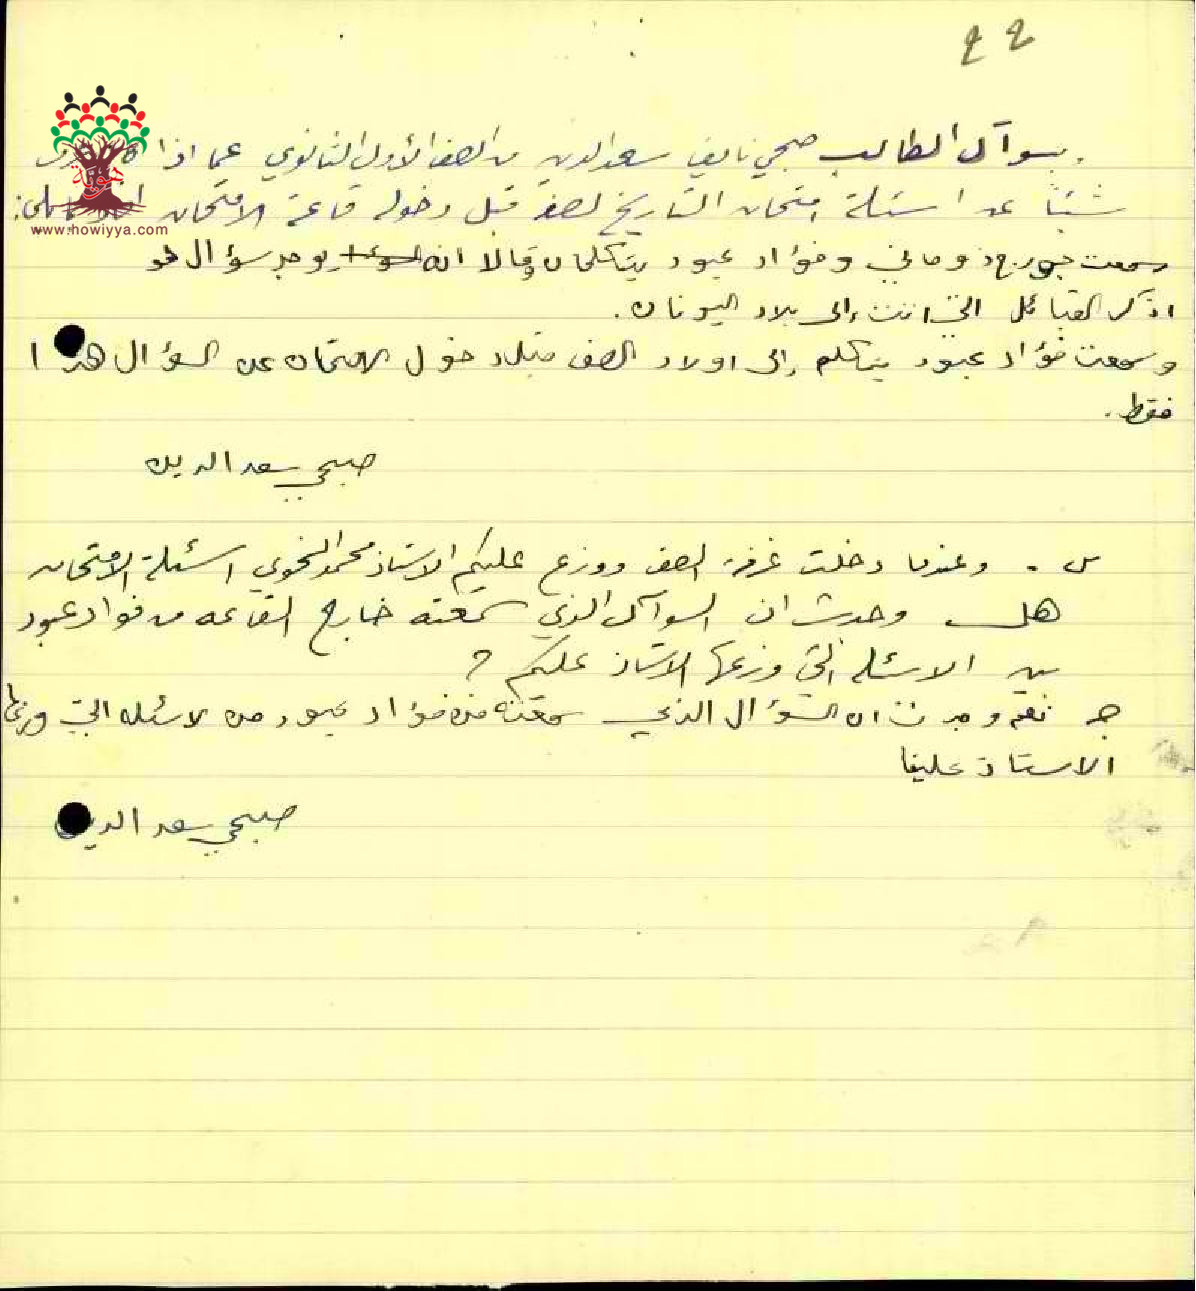 ٢٢
بسوآل الطالب صبحي نايف سعد الدين من الصف الأول الثانوي عما اذا
شيئاً عن اسئلة امتحان التاريخ لصفه قبل دخوله قاعة الامتحان
www.howiyya.com
سمعت جورج ذوماني وفؤاد عبود يتكلمان وقالا انه يوجد سؤال هو
اذكر القبائل التي اتت إلى بلاد اليونان.
وسمعت فؤاد عبود يتكلم إلى اولاد الصف قبل دخول الامتحان عن السؤال هذا
فقط.
صبحي سعد الدين
س . وعندما دخلت غرفة الصف ووزع عليكم الاستاذ محمد النحوي اسئلة الامتحان
هل وجدت ان السوآل الذي سمعته خارج القاعه من فؤاد عبود
بين الاسئله التي وزعها الاستاذ عليكم ؟
ج نعم وجدت ان السؤال الذي سمعته من فؤاد عبود من لاسئله التي وزعها
الاستاذ علينا
صبحي سعد الدين